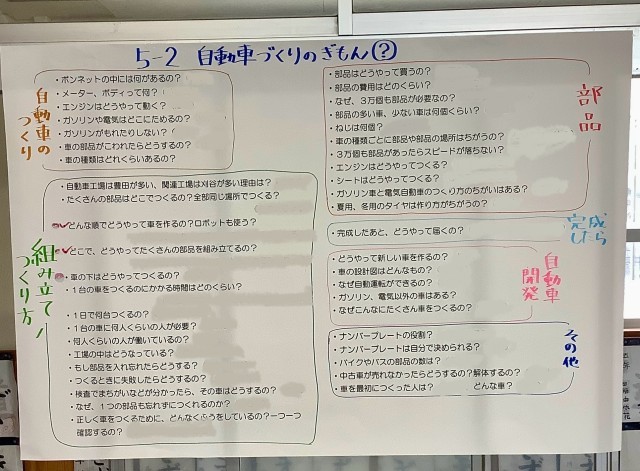 5-2 自動車づくりのぎもん?
自動車のつくり
・ボンネットの中には何があるの?
・メーター、ボディって何?
・エンジンはどうやって動く?
・ガソリンや電気はどこにためるの?
・ガソリンがもれたりしない?
・車の部品がこわれたらどうするの?
・車の種類はどれくらいあるの?
組み立て/つくり方
・自動車工場は豊田が多い、関連工場は刈谷が多い理由は?
・たくさんの部品はどこでつくるの?全部同じ場所でつくる?
どんな順でどうやって車を作るの?ロボットも使う?
どこで、どうやってたくさんの部品を組み立てるの?
・車の下はどうやってつくるの?
・1台の車をつくるのにかかる時間はどのくらい?
・1日で何台つくるの?
・1台の車に何人くらいの人が必要?
・何人くらいの人が働いているの?
・工場の中はどうなっている?
・もし部品を入れ忘れたらどうする?
・つくるときに失敗したらどうする?
・検査でまちがいなどが分かったら、その車はどうするの?
・なぜ、1つの部品も忘れずにつくれるのか?
・正しく車をつくるために、どんなくふうをしているの?一つ一つ
確認するの?
部品
・部品はどうやって買うの?
・部品の費用はどのくらい?
・なぜ、3万個も部品が必要なの?
・部品の多い車、少ない車は何個くらい?
・ねじは何個?
・車の種類ごとに部品や部品の場所はちがうの?
・3万個も部品があったらスピードが落ちない?
・エンジンはどうやってつくる?
・シートはどうやってつくる?
・ガソリン車と電気自動車のつくり方のちがいはある?
・夏用、冬用のタイヤは作り方がちがうの?
完成したら
・完成したあと、どうやって届くの?
自動車開発
・どうやって新しい車を作るの?
・車の設計図はどんなもの?
・なぜ自動運転ができるの?
・ガソリン、電気以外の車はある?
・なぜこんなにたくさん車をつくるの?
その他
・ナンバープレートの役割?
・ナンバープレートは自分で決められる?
・バイクやバスの部品の数は?
・中古車が売れなかったらどうするの?解体するの?
・車を最初につくった人は? どんな車?